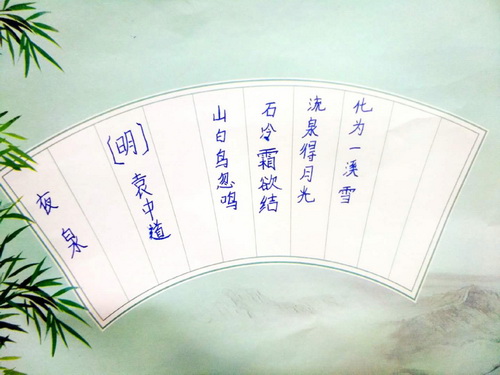 夜泉
[明]袁中道
山白鸟忽鸣
石冷霜欲结
流泉得月光
化为一溪雪